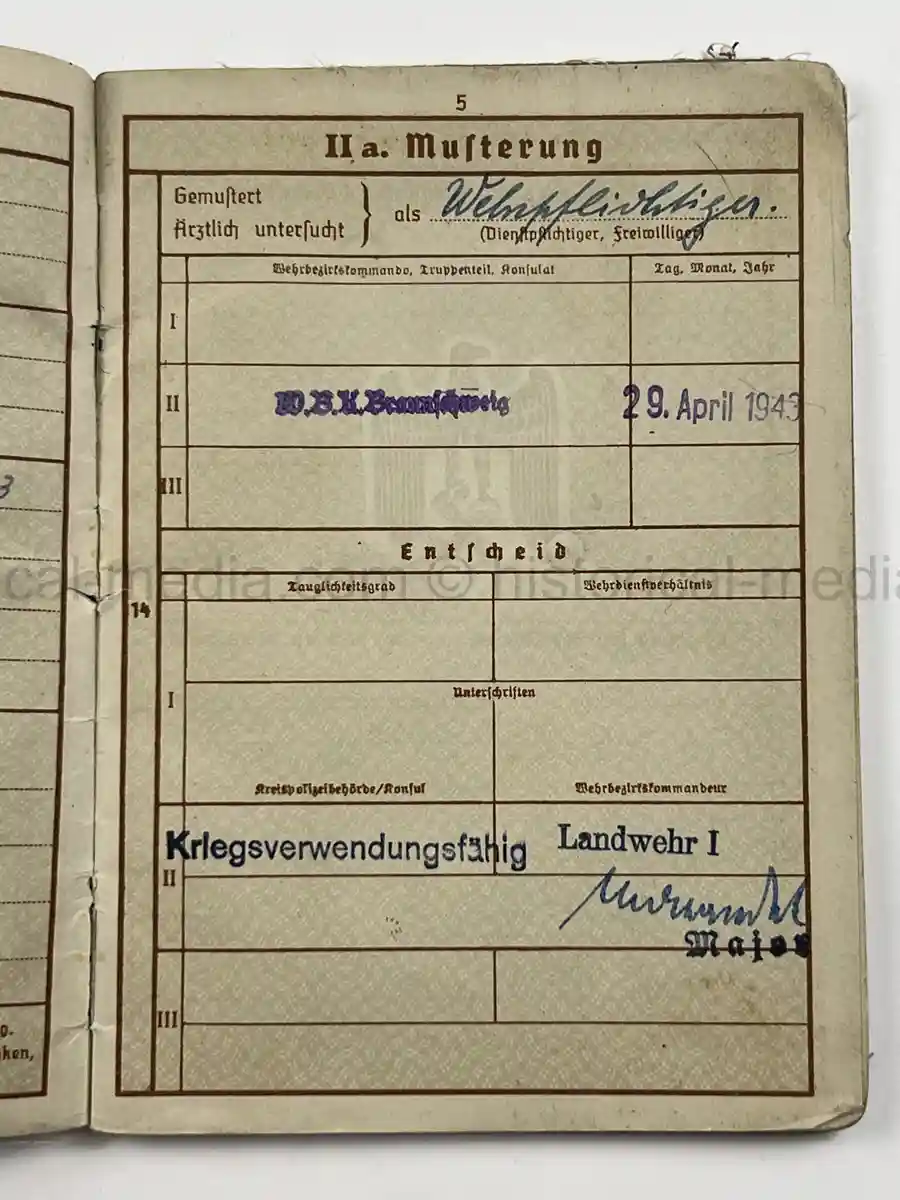 5
II a. Musterung
Gemustert
Ärztlich untersucht
als Wehrpflichtiger.
(Dienstpflichtiger, Freiwilliger)
Wehrbezirkskommando, Truppenteil, Konsulat
Tag, Monat, Jahr
I
II
W.B.K. Braunschweig
29. April 1943
III
Entscheid
14
Tauglichkeitsgrad
Wehrdienstverhältnis
I
Unterschriften
Kreispolizeibehörde/Konsul
Wehrbezirkskommandeur
Kriegsverwendungsfähig
Landwehr I
II
Major
III
3
ken,
cal-media.com © historical-media